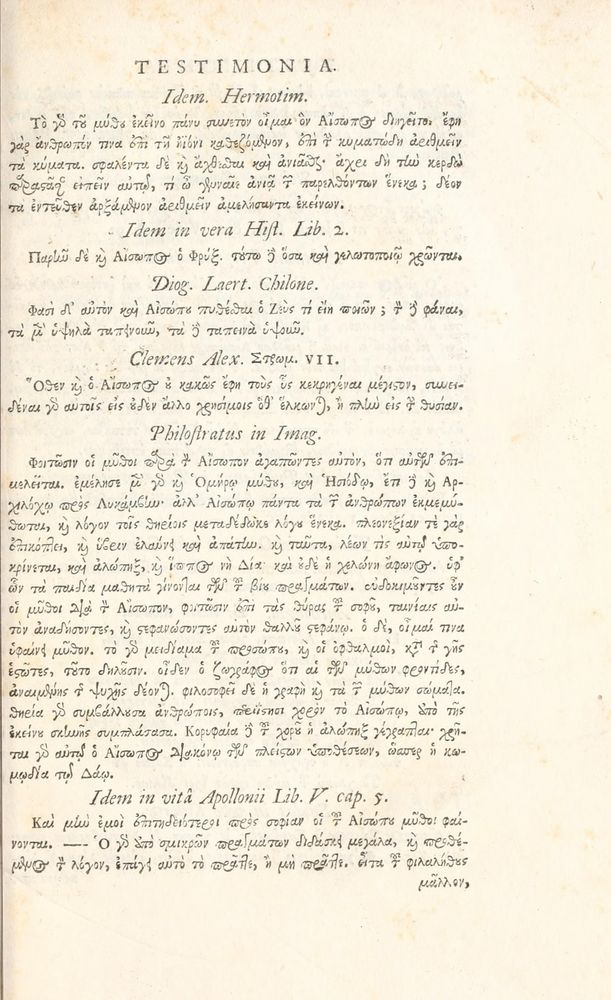 TESTIMONIA.
Idem. Hermotim.
Τὸ γὰρ τοῦ μύθου ἐκεῖνο πάνυ συνετὸν οἶμαι ὃν Αἴσωπος διηγεῖτο. ἔφη
γὰρ ἄνθρωπόν τινα ἐπὶ τῇ ἠιόνι καθεζόμενον, ἐπὶ τὴν κυματώδη ἀριθμεῖν
τὰ κύματα. σφαλέντα δὲ καὶ ἄχθεσθαι καὶ ἀνιᾶσθαι· ἄχρι δὴ τὴν κερδὼ
παραστᾶσαν εἰπεῖν αὐτῷ, τί ὦ γενναῖε ἀνιᾷ τῶν παρελθόντων ἕνεκα; δέον
τὰ ἐντεῦθεν ἀρξάμενον ἀριθμεῖν ἀμελήσαντα ἐκείνων.
Idem in vera Hist. Lib. 2.
Παρῆν δὲ καὶ Αἴσωπος ὁ Φρύξ. τούτῳ δὲ ὅσα καὶ γελωτοποιῷ χρῶνται.
Diog. Laert. Chilone.
Φασὶ δ' αὐτὸν καὶ Αἰσώπου πυθέσθαι ὁ Ζεὺς τί εἴη ποιῶν; τὸν δὲ φάναι,
τὰ μὲν ὑψηλὰ ταπεινοῦν, τὰ δὲ ταπεινὰ ὑψοῦν.
Clemens Alex. Στρωμ. VII.
Ὅθεν καὶ ὁ Αἴσωπος οὐ κακῶς ἔφη τοὺς ὗς κεκραγέναι μέγιστον, συνει-
δέναι γὰρ αὐτοῖς εἰς οὐδὲν ἄλλο χρησίμοις ὅθ' ἕλκωνται, ἢ πλὴν εἰς τὴν θυσίαν.
Philostratus in Imag.
Φοιτῶσιν οἱ μῦθοι παρὰ τὸν Αἴσωπον ἀγαπῶντες αὐτόν, ὅτι αὐτῶν ἐπι-
μελεῖται. ἐμέλησε μὲν γὰρ καὶ Ὁμήρῳ μύθου, καὶ Ἡσιόδῳ, ἔτι δὲ καὶ Ἀρ-
χιλόχῳ πρὸς Λυκάμβην· ἀλλ' Αἰσώπῳ πάντα τὰ τῶν ἀνθρώπων ἐκμεμύ-
θωται, καὶ λόγον τοῖς θηρίοις μεταδέδωκε λόγου ἕνεκα. πλεονεξίαν τε γὰρ
ἐπικόπτει, καὶ ὕβριν ἐλαύνει καὶ ἀπάτην. καὶ ταῦτα, λέων τις αὐτῷ ὑπο-
κρίνεται, καὶ ἀλώπηξ, καὶ ἵππος νὴ Δία· καὶ οὐδὲ ἡ χελώνη ἄφωνος. ὑφ'
ὧν τὰ παιδία μαθηταὶ γίνονται τῶν τοῦ βίου πραγμάτων. εὐδοκιμοῦντες οὖν
οἱ μῦθοι διὰ τὸν Αἴσωπον, φοιτῶσιν ἐπὶ τὰς θύρας τοῦ σοφοῦ, ταινίαις αὐ-
τὸν ἀναδήσοντες, καὶ στεφανώσοντες αὐτὸν θαλλοῦ στεφάνῳ. ὁ δὲ, οἶμαί τινα
ὑφαίνει μῦθον. τὸ γὰρ μειδίαμα τοῦ προσώπου, καὶ οἱ ὀφθαλμοὶ, κατὰ τῆς γῆς
ἑστῶτες, τοῦτο δηλοῦσιν. οἶδεν ὁ ζωγράφος ὅτι αἱ τῶν μύθων φροντίδες,
ἀνειμένης τῆς ψυχῆς δέονται. φιλοσοφεῖ δὲ ἡ γραφὴ καὶ τὰ τῶν μύθων σώματα.
θηρία γὰρ συμβάλλουσα ἀνθρώποις, περιίστησι χορὸν τὸ Αἰσώπῳ, ἀπὸ τῆς
ἐκείνου σκηνῆς συμπλάσασα. Κορυφαία δὲ τοῦ χοροῦ ἡ ἀλώπηξ γέγραπται· χρῆ-
ται γὰρ αὐτῷ ὁ Αἴσωπος διακόνῳ τῶν πλείστων ὑποθέσεων, ὥσπερ ἡ κω-
μῳδία τῷ Δάῳ.
Idem in vitâ Apollonii Lib. V. cap. 5.
Καὶ μὴν ἐμοὶ ἐπιτηδειότεροι πρὸς σοφίαν οἱ τοῦ Αἰσώπου μῦθοι φαί-
νονται. —— Ὁ γὰρ ἀπὸ σμικρῶν πραγμάτων διδάσκει μεγάλα, καὶ προθέ-
μενος τὸν λόγον, ἐπάγει αὐτὸ τὸ πρᾶττε, ἢ μὴ πρᾶττε. εἶτα τοῦ φιλαλήθους
μᾶλλον,